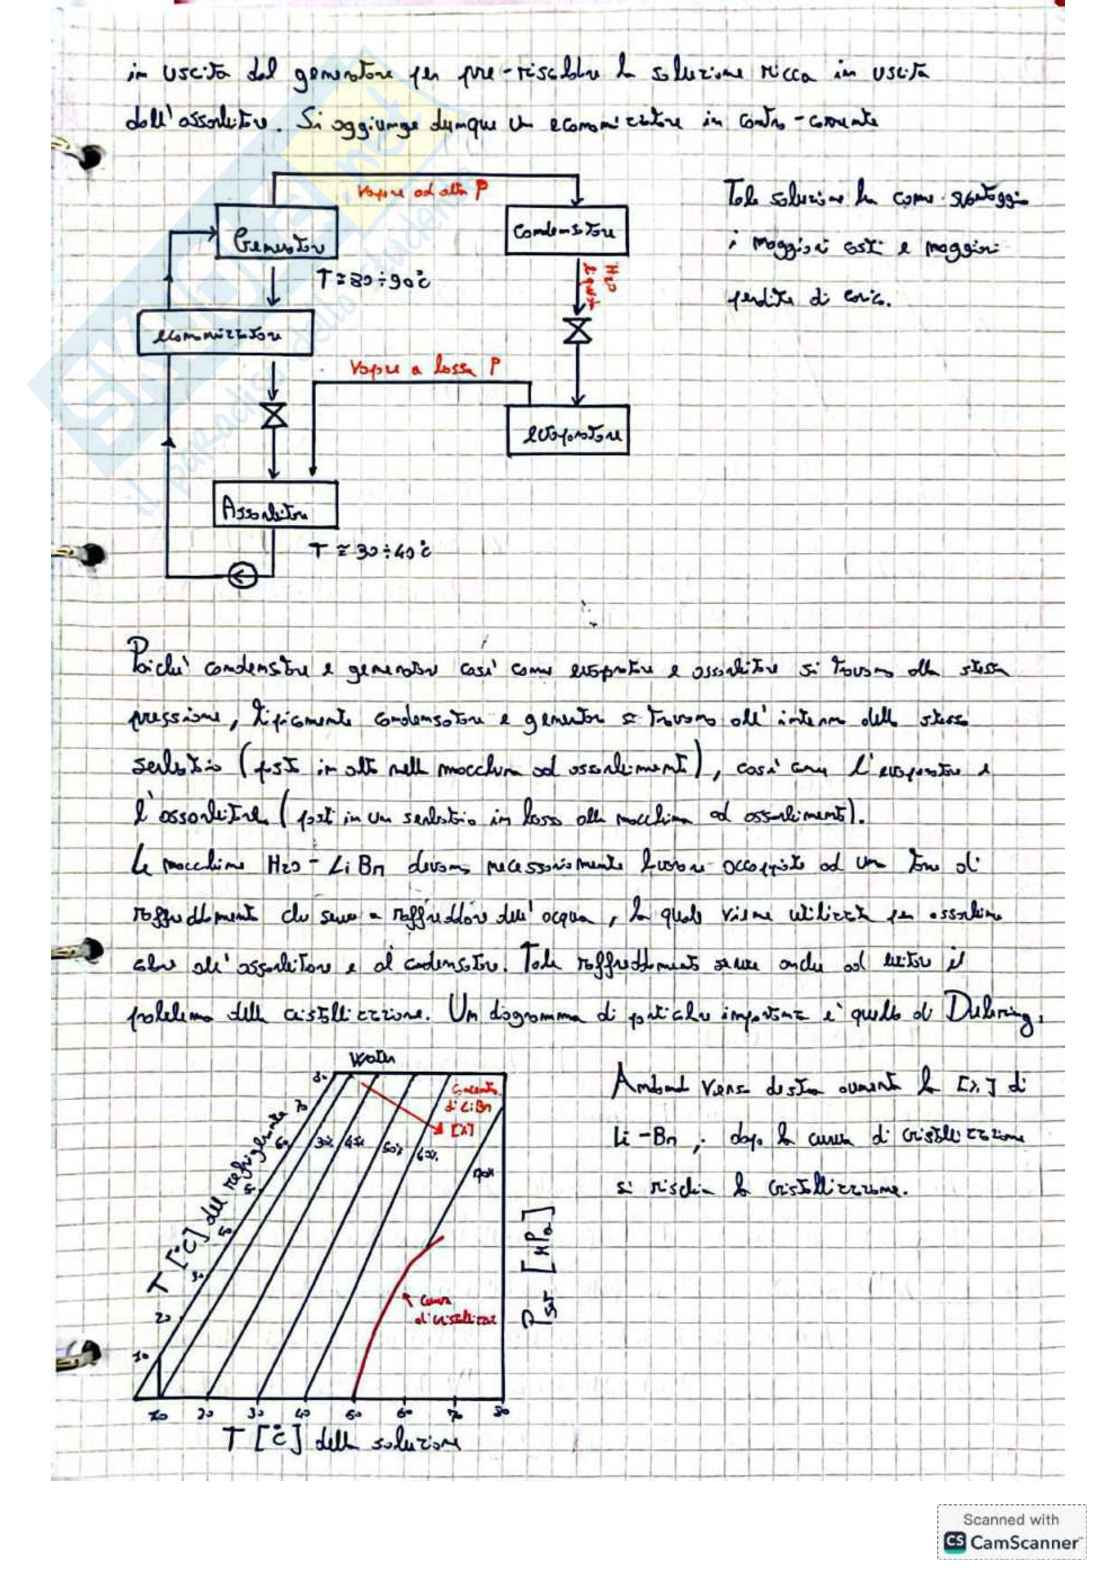 in uscita dal generatore per pre-riscaldare la soluzione ricca in uscita
dall'assorbitore. Si aggiunge dunque un economizzatore in contro-corrente
Vapore ad alta P
Generatore
Condensatore
Tale soluzione ha come svantaggio
i maggiori costi e maggiori
perdite di carico.
T ≅ 80÷90°C
H2O liquida
economizzatore
Vapore a bassa P
evaporatore
Assorbitore
T ≅ 30÷40°C
Poiché condensatore e generatore così come evaporatore e assorbitore si trovano alla stessa
pressione, tipicamente condensatore e generatore si trovano all'interno dello stesso
serbatoio (posto in alto nella macchina ad assorbimento), così come l'evaporatore e
l'assorbitore (posti in un serbatoio in basso alla macchina ad assorbimento).
Le macchine H2O - LiBr devono necessariamente lavorare accoppiate ad una torre di
raffreddamento che serve a raffreddare dell'acqua, la quale viene utilizzata per asportare
calore all'assorbitore e al condensatore. Tale raffreddamento serve anche ad evitare il
problema della cristallizzazione. Un diagramma di particolare importanza è quello di Duhring.
Water
80
70
60
50
30
20
10
T [°C] del refrigerante
30%
45%
50%
60%
70%
di LiBr
[λ]
curva
di cristallizzaz
P sat [kPa]
10 20 30 40 50 60 70 80
T [°C] della soluzione
Andando verso destra aumenta la [λ] di
Li-Br; dopo la curva di cristallizzazione
si rischia la cristallizzazione.
Scanned with
CS CamScanner